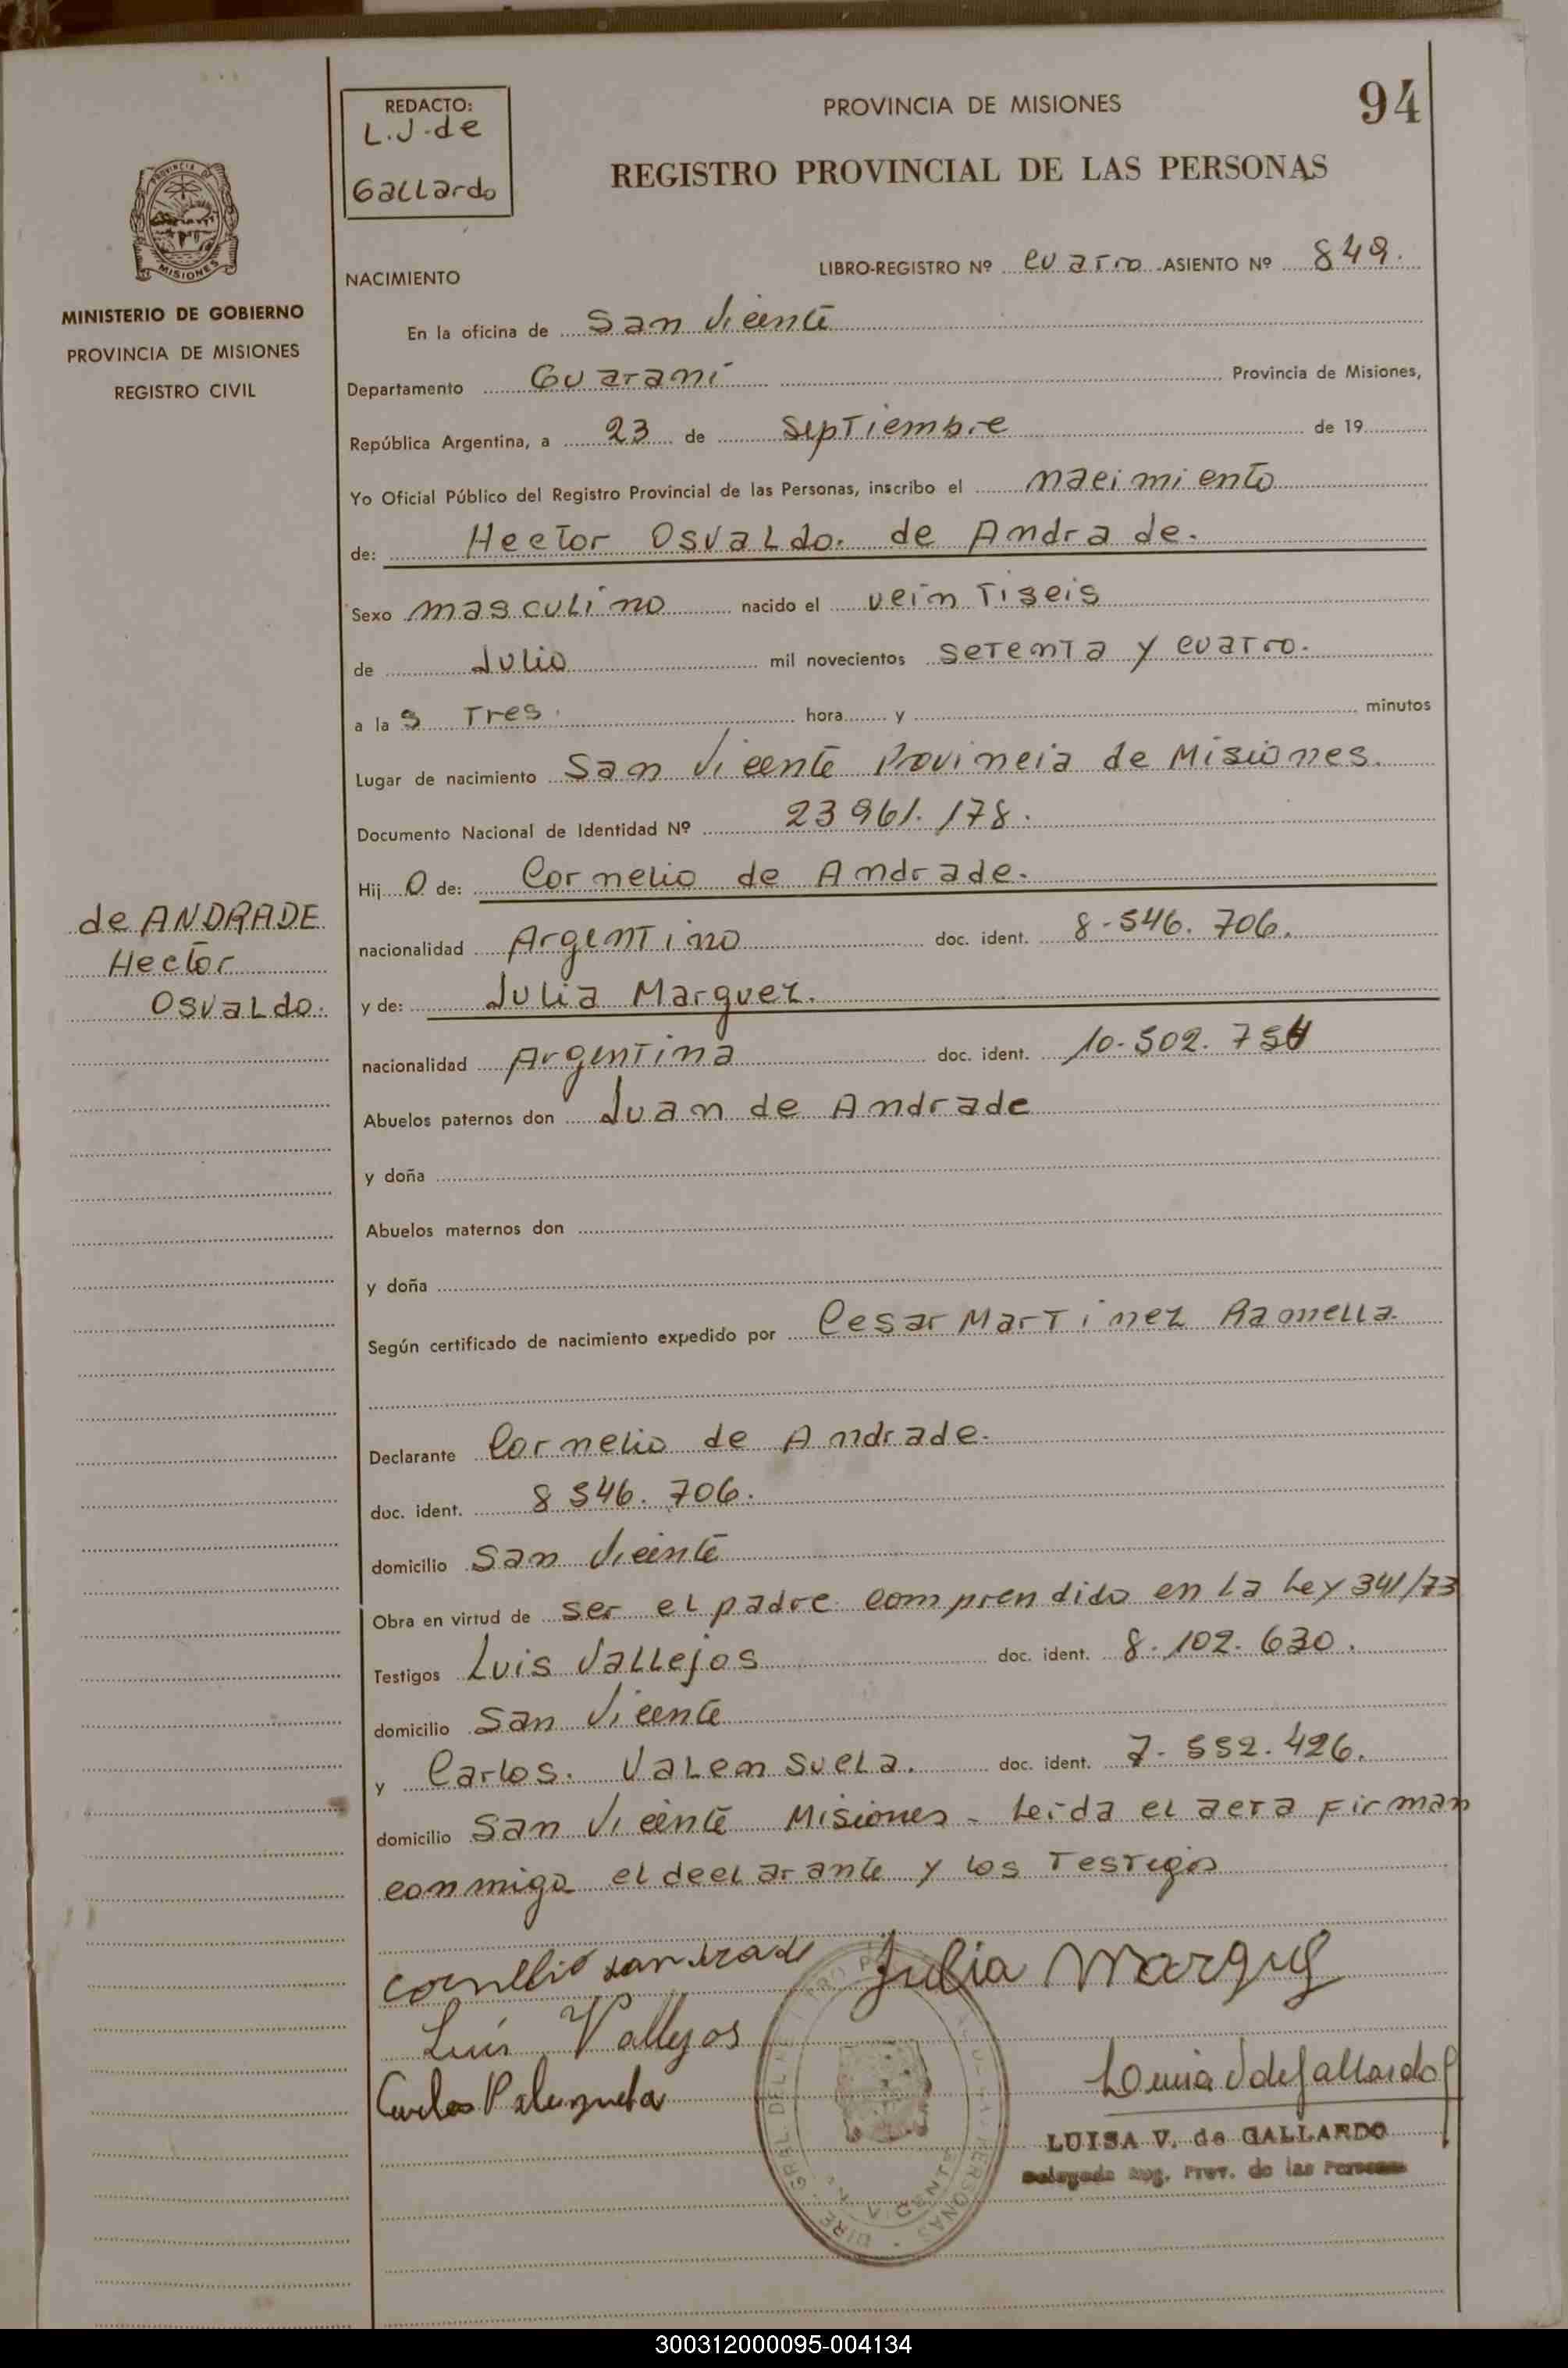 94
REDACTO:
L.J. de
Gallardo
PROVINCIA DE MISIONES
REGISTRO PROVINCIAL DE LAS PERSONAS
MISIONES
MINISTERIO DE GOBIERNO
PROVINCIA DE MISIONES
REGISTRO CIVIL
NACIMIENTO
LIBRO-REGISTRO Nº cuatro ASIENTO Nº 849.
En la oficina de San Vicente
Departamento Guaraní Provincia de Misiones,
República Argentina, a 23 de Septiembre de 19
Yo Oficial Público del Registro Provincial de las Personas, inscribo el nacimiento
de: Hector Osvaldo. de Andrade.
Sexo masculino nacido el veintiseis
de Julio mil novecientos setenta y cuatro.
a las Tres. hora y minutos
Lugar de nacimiento San Vicente Provincia de Misiones.
Documento Nacional de Identidad Nº 23 961.178.
Hij O de: Cornelio de Andrade.
de ANDRADE
Hector
Osvaldo.
nacionalidad Argentino doc. ident. 8-546.706.
y de: Julia Marquez.
nacionalidad Argentina doc. ident. 10-502.754
Abuelos paternos don Juan de Andrade
y doña
Abuelos maternos don
y doña
Según certificado de nacimiento expedido por Cesar Martinez Ramella.
Declarante Cornelio de Andrade.
doc. ident. 8 546.706.
domicilio San Vicente
Obra en virtud de ser el padre comprendido en la Ley 341/73
Testigos Luis Vallejos doc. ident. 8.102.630.
domicilio San Vicente
y Carlos. Valensuela. doc. ident. 7-552.426.
domicilio San Vicente Misiones - Leida el acta firman
conmigo el declarante y los testigos
Julia Marquez
Luis Vallejos
LUISA V. de GALLARDO
Delegada Reg. Prov. de las Personas
300312000095-004134